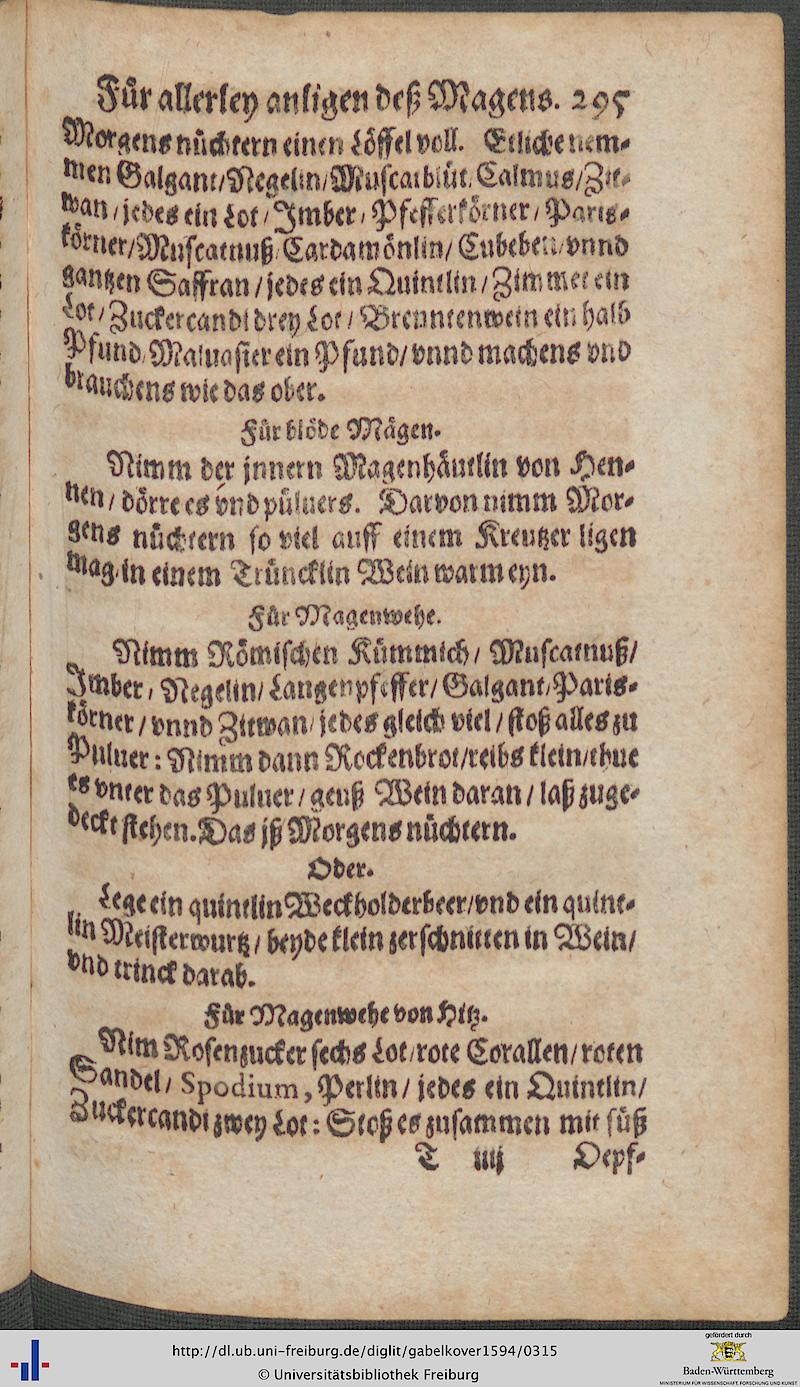 Für allerley anligen deß Magens. 295
Morgens nüchtern einen Löffel voll. Etliche nem-
men Galgant/Negelin/Muscatblüt/Calmus/Zit-
wan/jedes ein Lot/Imber/Pfefferkörner/Paris-
körner/Muscatnuß/Cardamönlin/Cubeben/vnnd
gantzen Saffran/jedes ein Quintlin/Zimmet ein
Lot/Zuckercandi drey Lot/Brenntenwein ein halb
Pfund/Maluasier ein Pfund/vnnd machens vnd
brauchens wie das ober.
Für blöde Mägen.
Nimm der jnnern Magenhäutlin von Hen-
nen/dörre es vnd püluers. Darvon nimm Mor-
gens nüchtern so viel auff einem Kreutzer ligen
mag/in einem Trüncklin Wein warm eyn.
Für Magenwehe.
Nimm Römischen Kümmich/Muscatnuß/
Imber/Negelin/Langenpfeffer/Galgant/Paris-
körner/vnnd Zitwan/jedes gleich viel/stoß alles zu
Puluer: Nimm dann Rockenbrot/reibs klein/thue
es vnter das Puluer/geuß Wein daran/laß zuge-
deckt stehen. Das jß Morgens nüchtern.
Oder.
Lege ein quintlin Weckholderbeer/vnd ein quint-
lin Meisterwurtz/beyde klein zerschnitten in Wein/
vnd trinck darab.
Für Magenwehe von Hitz.
Nim Rosenzucker sechs Lot/rote Corallen/roten
Sandel/Spodium, Perlin/jedes ein Quintlin/
Zuckercandi zwey Lot: Stoß es zusammen mit süß
T iiij Oepf-
http://dl.ub.uni-freiburg.de/diglit/gabelkover1594/0315
© Universitätsbibliothek Freiburg
gefördert durch
Baden-Württemberg
MINISTERIUM FÜR WISSENSCHAFT, FORSCHUNG UND KUNST